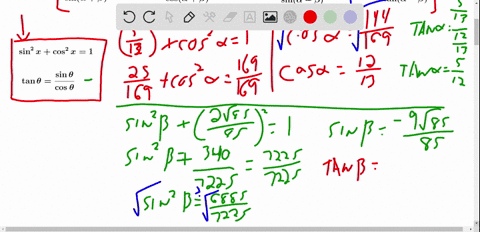 sin² x + cos² x = 1
tan θ = sin θ / cos θ –
(5/13)² + cos² α = 1
25/169 + cos² α = 169/169
√cos² α = √144/169
cos α = 12/13
TAN α = 5/13 / 12/13
TAN α = 5/12
sin² β + (2√85/85)² = 1
sin² β + 340/7225 = 7225/7225
√sin² β = √6885/7225
sin β = -9√85/85
TAN β =